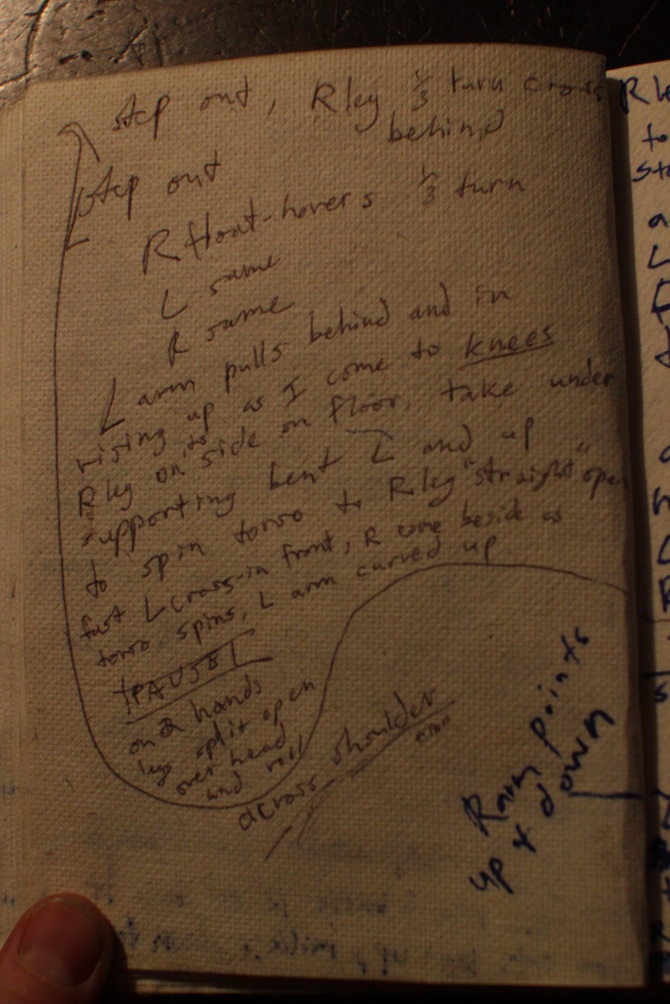 step out, R leg 1/3 turn cross
behind
step out
R float-hovers 1/3 turn
L same
R same
L arm pulls behind and in
rising up as I come to knees
R leg on side on floor, take under
supporting bent L and up
to spin torso to R leg "straight" open
fast L cross-in front, R come beside as
torso spins, L arm curved up
PAUSE
on 2 hands
legs split open
over head
and roll
across shoulder
R arm points
up & down